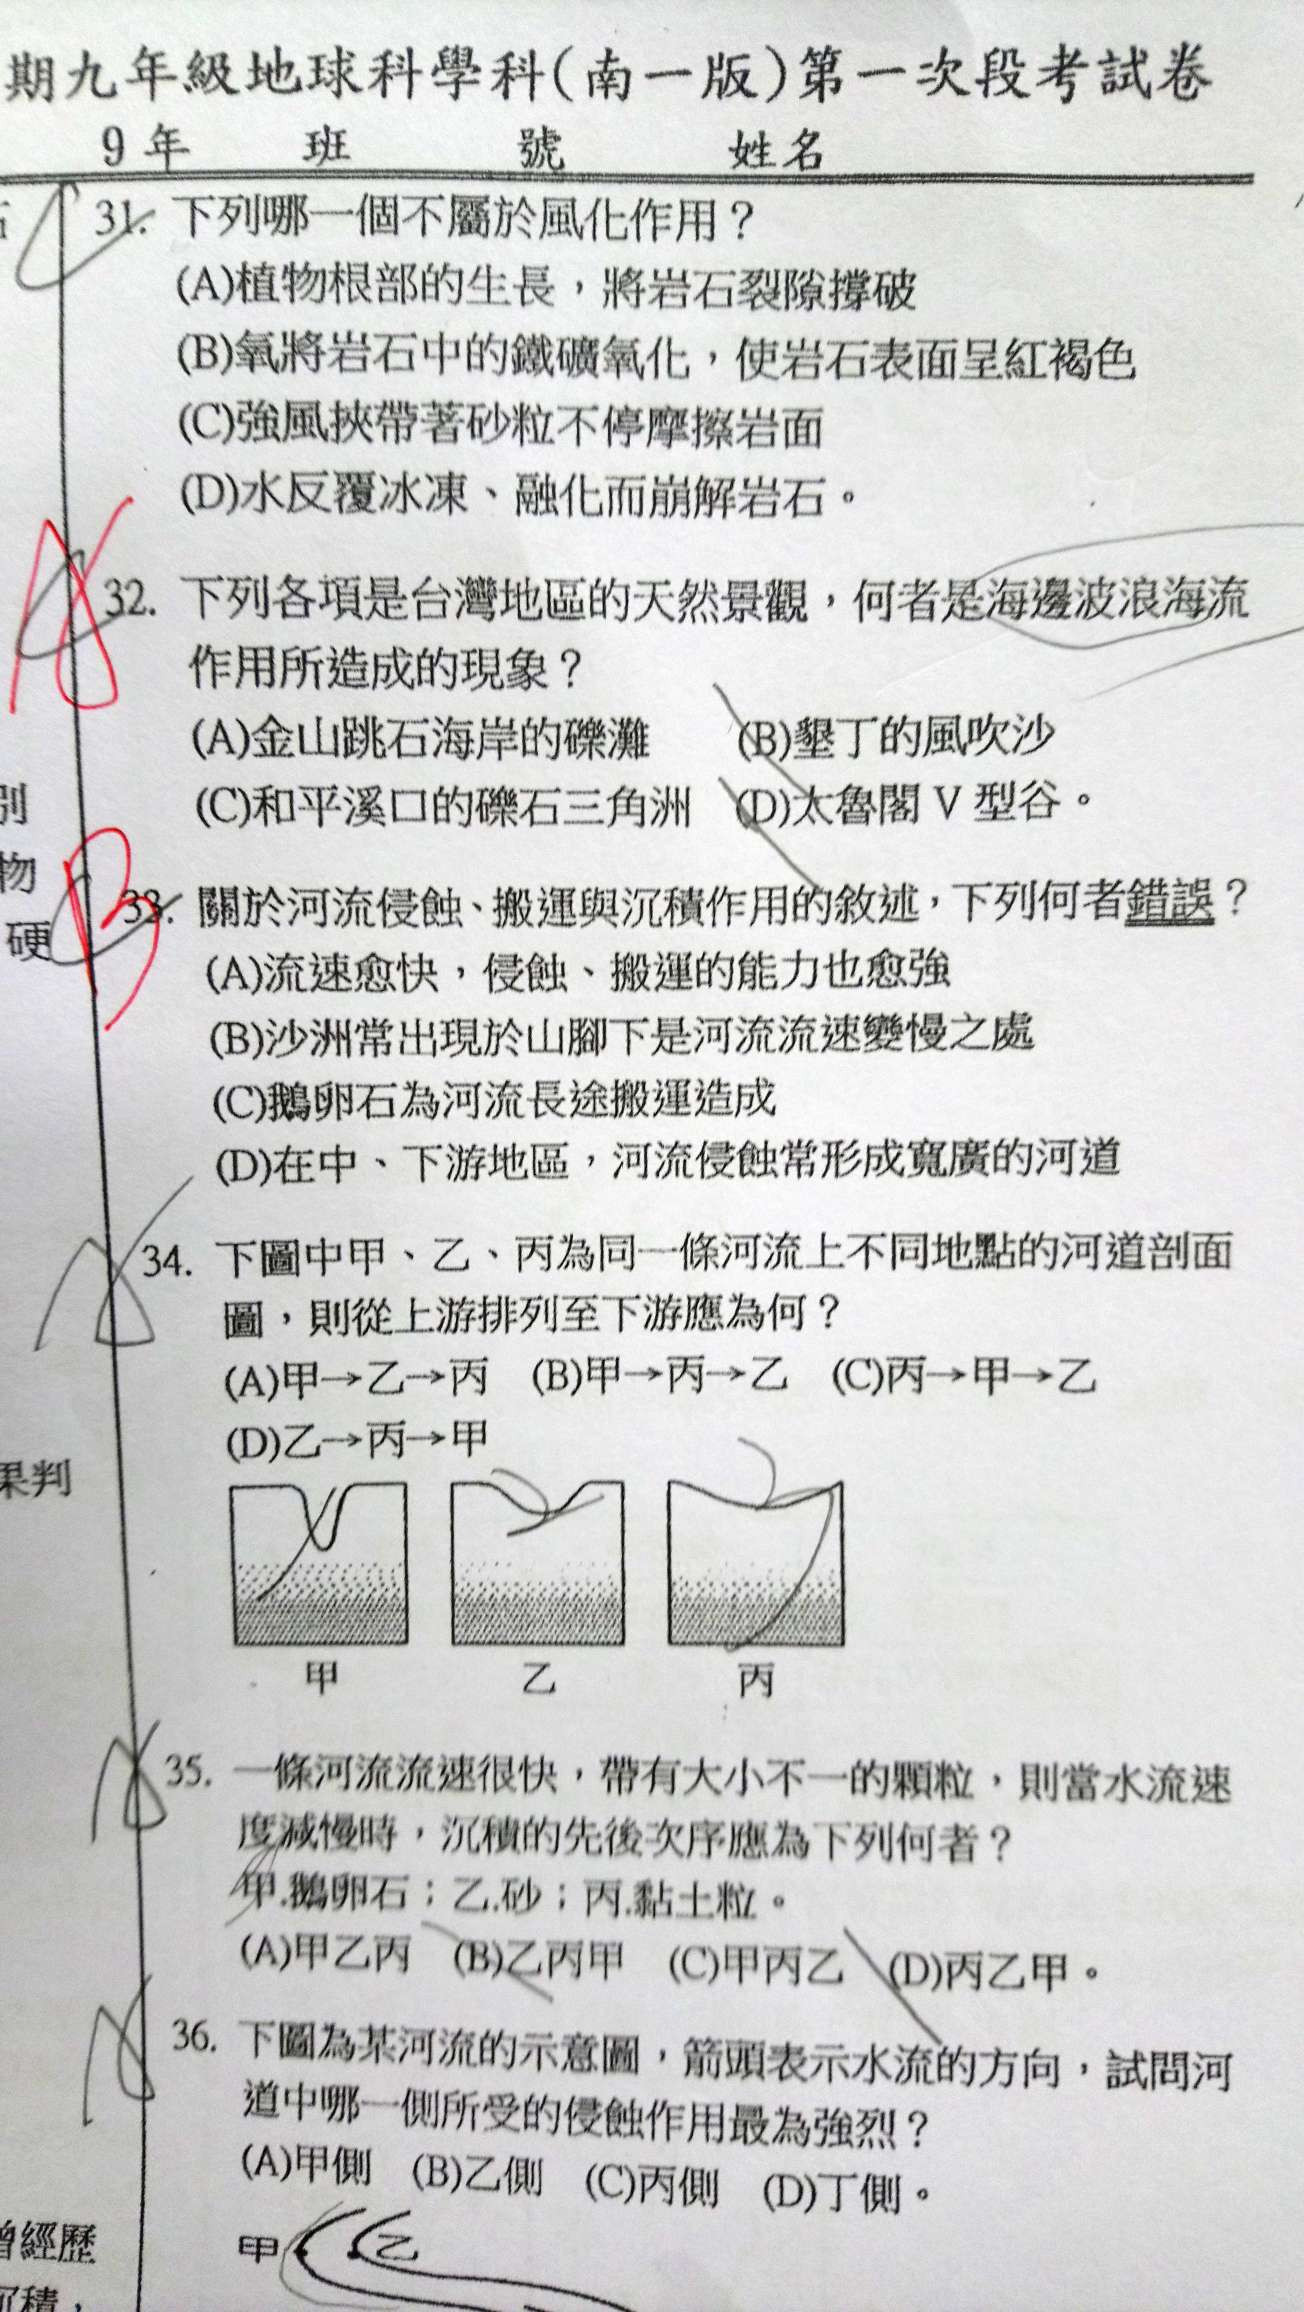 期九年級地球科學科(南一版)第一次段考試卷
9年 班 號 姓名
C 31. 下列哪一個不屬於風化作用？
(A)植物根部的生長，將岩石裂隙撐破
(B)氧將岩石中的鐵礦氧化，使岩石表面呈紅褐色
(C)強風挾帶著砂粒不停摩擦岩面
(D)水反覆冰凍、融化而崩解岩石。
A C 32. 下列各項是台灣地區的天然景觀，何者是海邊波浪海流
作用所造成的現象？
(A)金山跳石海岸的礫灘 (B)墾丁的風吹沙
(C)和平溪口的礫石三角洲 (D)太魯閣 V 型谷。
B C 33. 關於河流侵蝕、搬運與沉積作用的敘述，下列何者錯誤？
(A)流速愈快，侵蝕、搬運的能力也愈強
(B)沙洲常出現於山腳下是河流流速變慢之處
(C)鵝卵石為河流長途搬運造成
(D)在中、下游地區，河流侵蝕常形成寬廣的河道
A 34. 下圖中甲、乙、丙為同一條河流上不同地點的河道剖面
圖，則從上游排列至下游應為何？
(A)甲→乙→丙 (B)甲→丙→乙 (C)丙→甲→乙
(D)乙→丙→甲
甲 乙 丙
A 35. 一條河流流速很快，帶有大小不一的顆粒，則當水流速
度減慢時，沉積的先後次序應為下列何者？
甲.鵝卵石；乙.砂；丙.黏土粒。
(A)甲乙丙 (B)乙丙甲 (C)甲丙乙 (D)丙乙甲。
A 36. 下圖為某河流的示意圖，箭頭表示水流的方向，試問河
道中哪一側所受的侵蝕作用最為強烈？
(A)甲側 (B)乙側 (C)丙側 (D)丁側。
甲 乙
別
物
硬
果判
曾經歷
沉積，